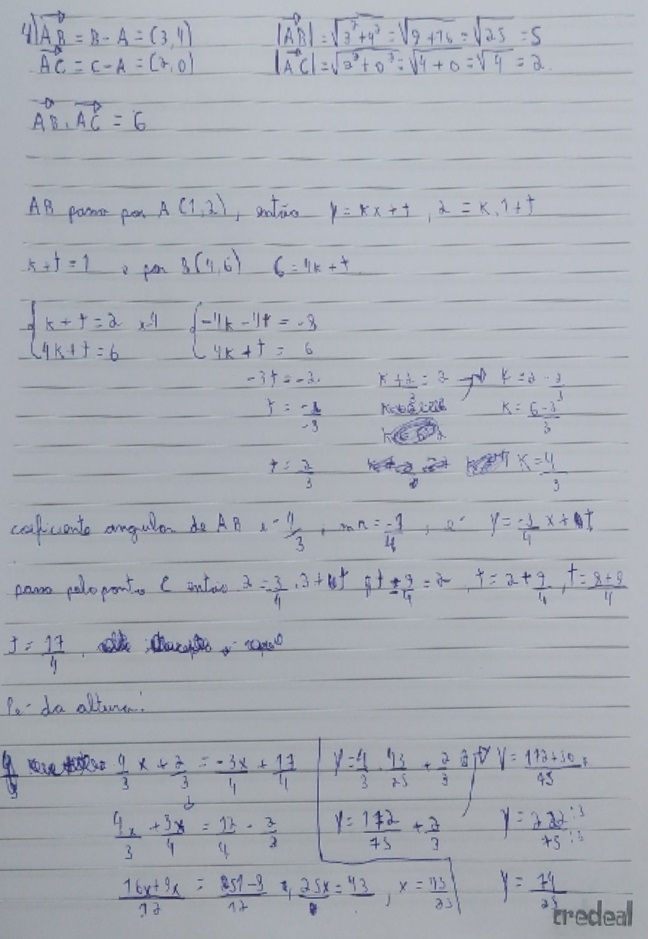 4) AB = B - A = (3,4)   |AB| = √3²+4² = √9+16 = √25 = 5
AC = C - A = (2,0)   |AC| = √2²+0² = √4+0 = √4 = 2
AB . AC = 6
AB passa por A (1,2), então y = kx + t, 2 = k.1 + t
k + t = 1 e por B(4,6)   6 = 4k + t
{ k + t = 2 x-4   { -4k - 4t = -8
4k + t = 6   4k + t = 6
-3t = -2   k + 2/3 = 2 → k = 2 - 2/3
t = -2/-3   k = 6-2/3
t = 2/3   k = 4/3
coeficiente angular de AB e 4/3, mr = -3/4, e y = -3/4 x + t
passa pelo ponto C então 2 = -3/4 . 3 + t, t - 9/4 = 2, t = 2 + 9/4, t = 8+9/4
t = 17/4
Pe da altura:
4/3 x + 2/3 = -3x/4 + 17/4   y = 4/3 . 43/25 + 2/3   y = 172+50/75
4x/3 + 3x/4 = 17/4 - 2/3   y = 172/75 + 2/3   y = 222:3/75:3
16x+9x/12 = 51-8/12, 25x = 43, x = 43/25   y = 74/25
tredeal